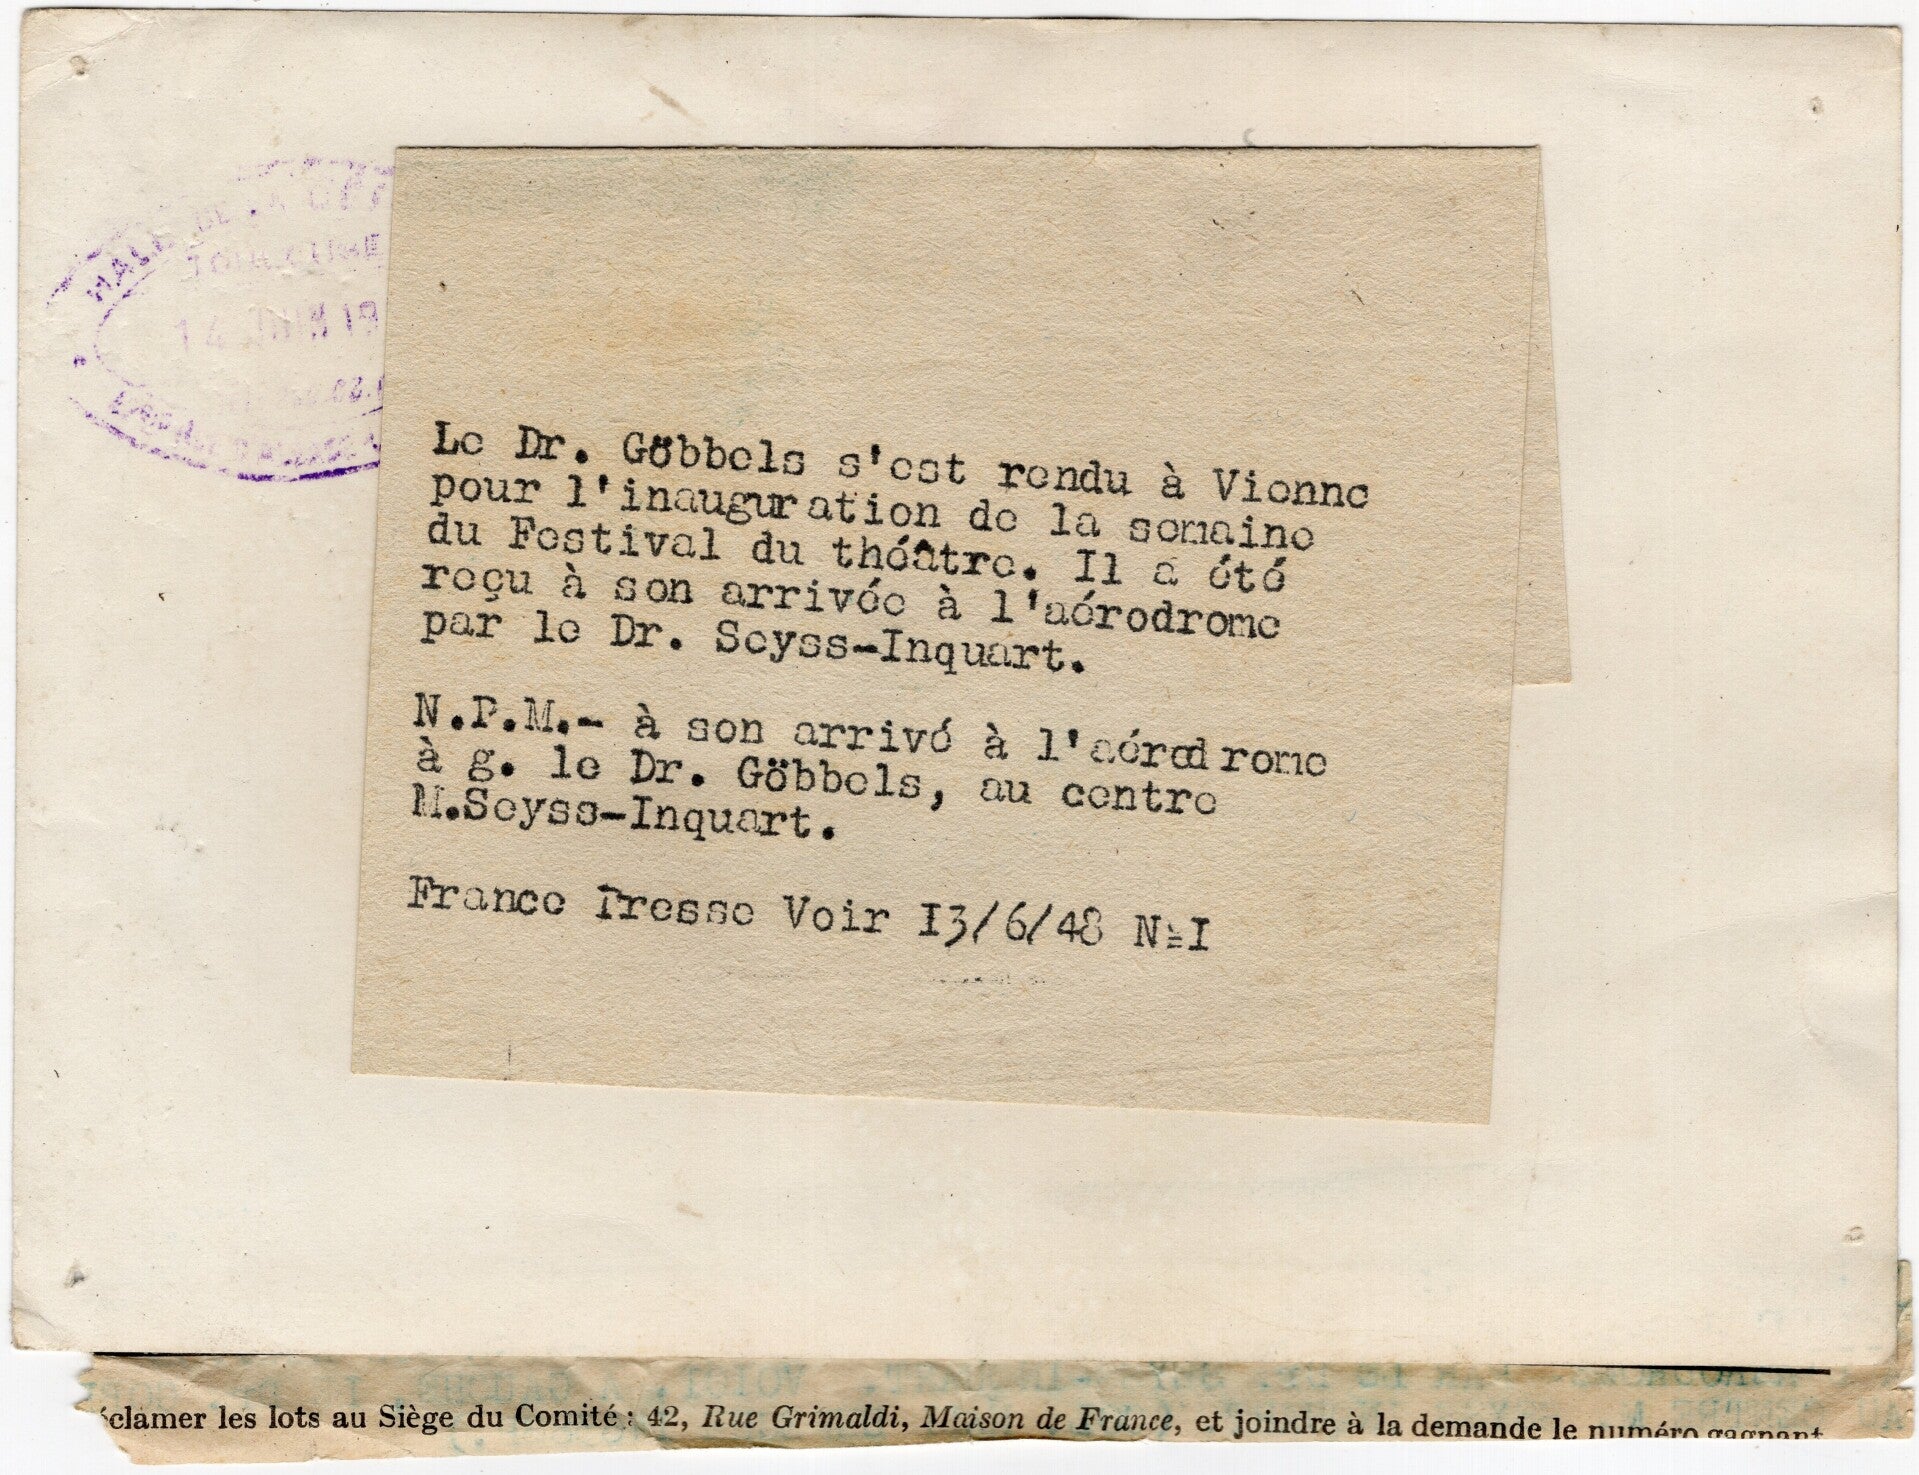 14 JUIN 19
Le Dr. Göbbels s'est rendu à Vienne
pour l'inauguration de la semaine
du Festival du théâtre. Il a été
reçu à son arrivée à l'aérodrome
par le Dr. Seyss-Inquart.
N.P.M.- à son arrivé à l'aérodrome
à g. le Dr. Göbbels, au centre
M.Seyss-Inquart.
France Presse Voir I3/6/48 N°I
éclamer les lots au Siège du Comité : 42, Rue Grimaldi, Maison de France, et joindre à la demande le numéro gagnant